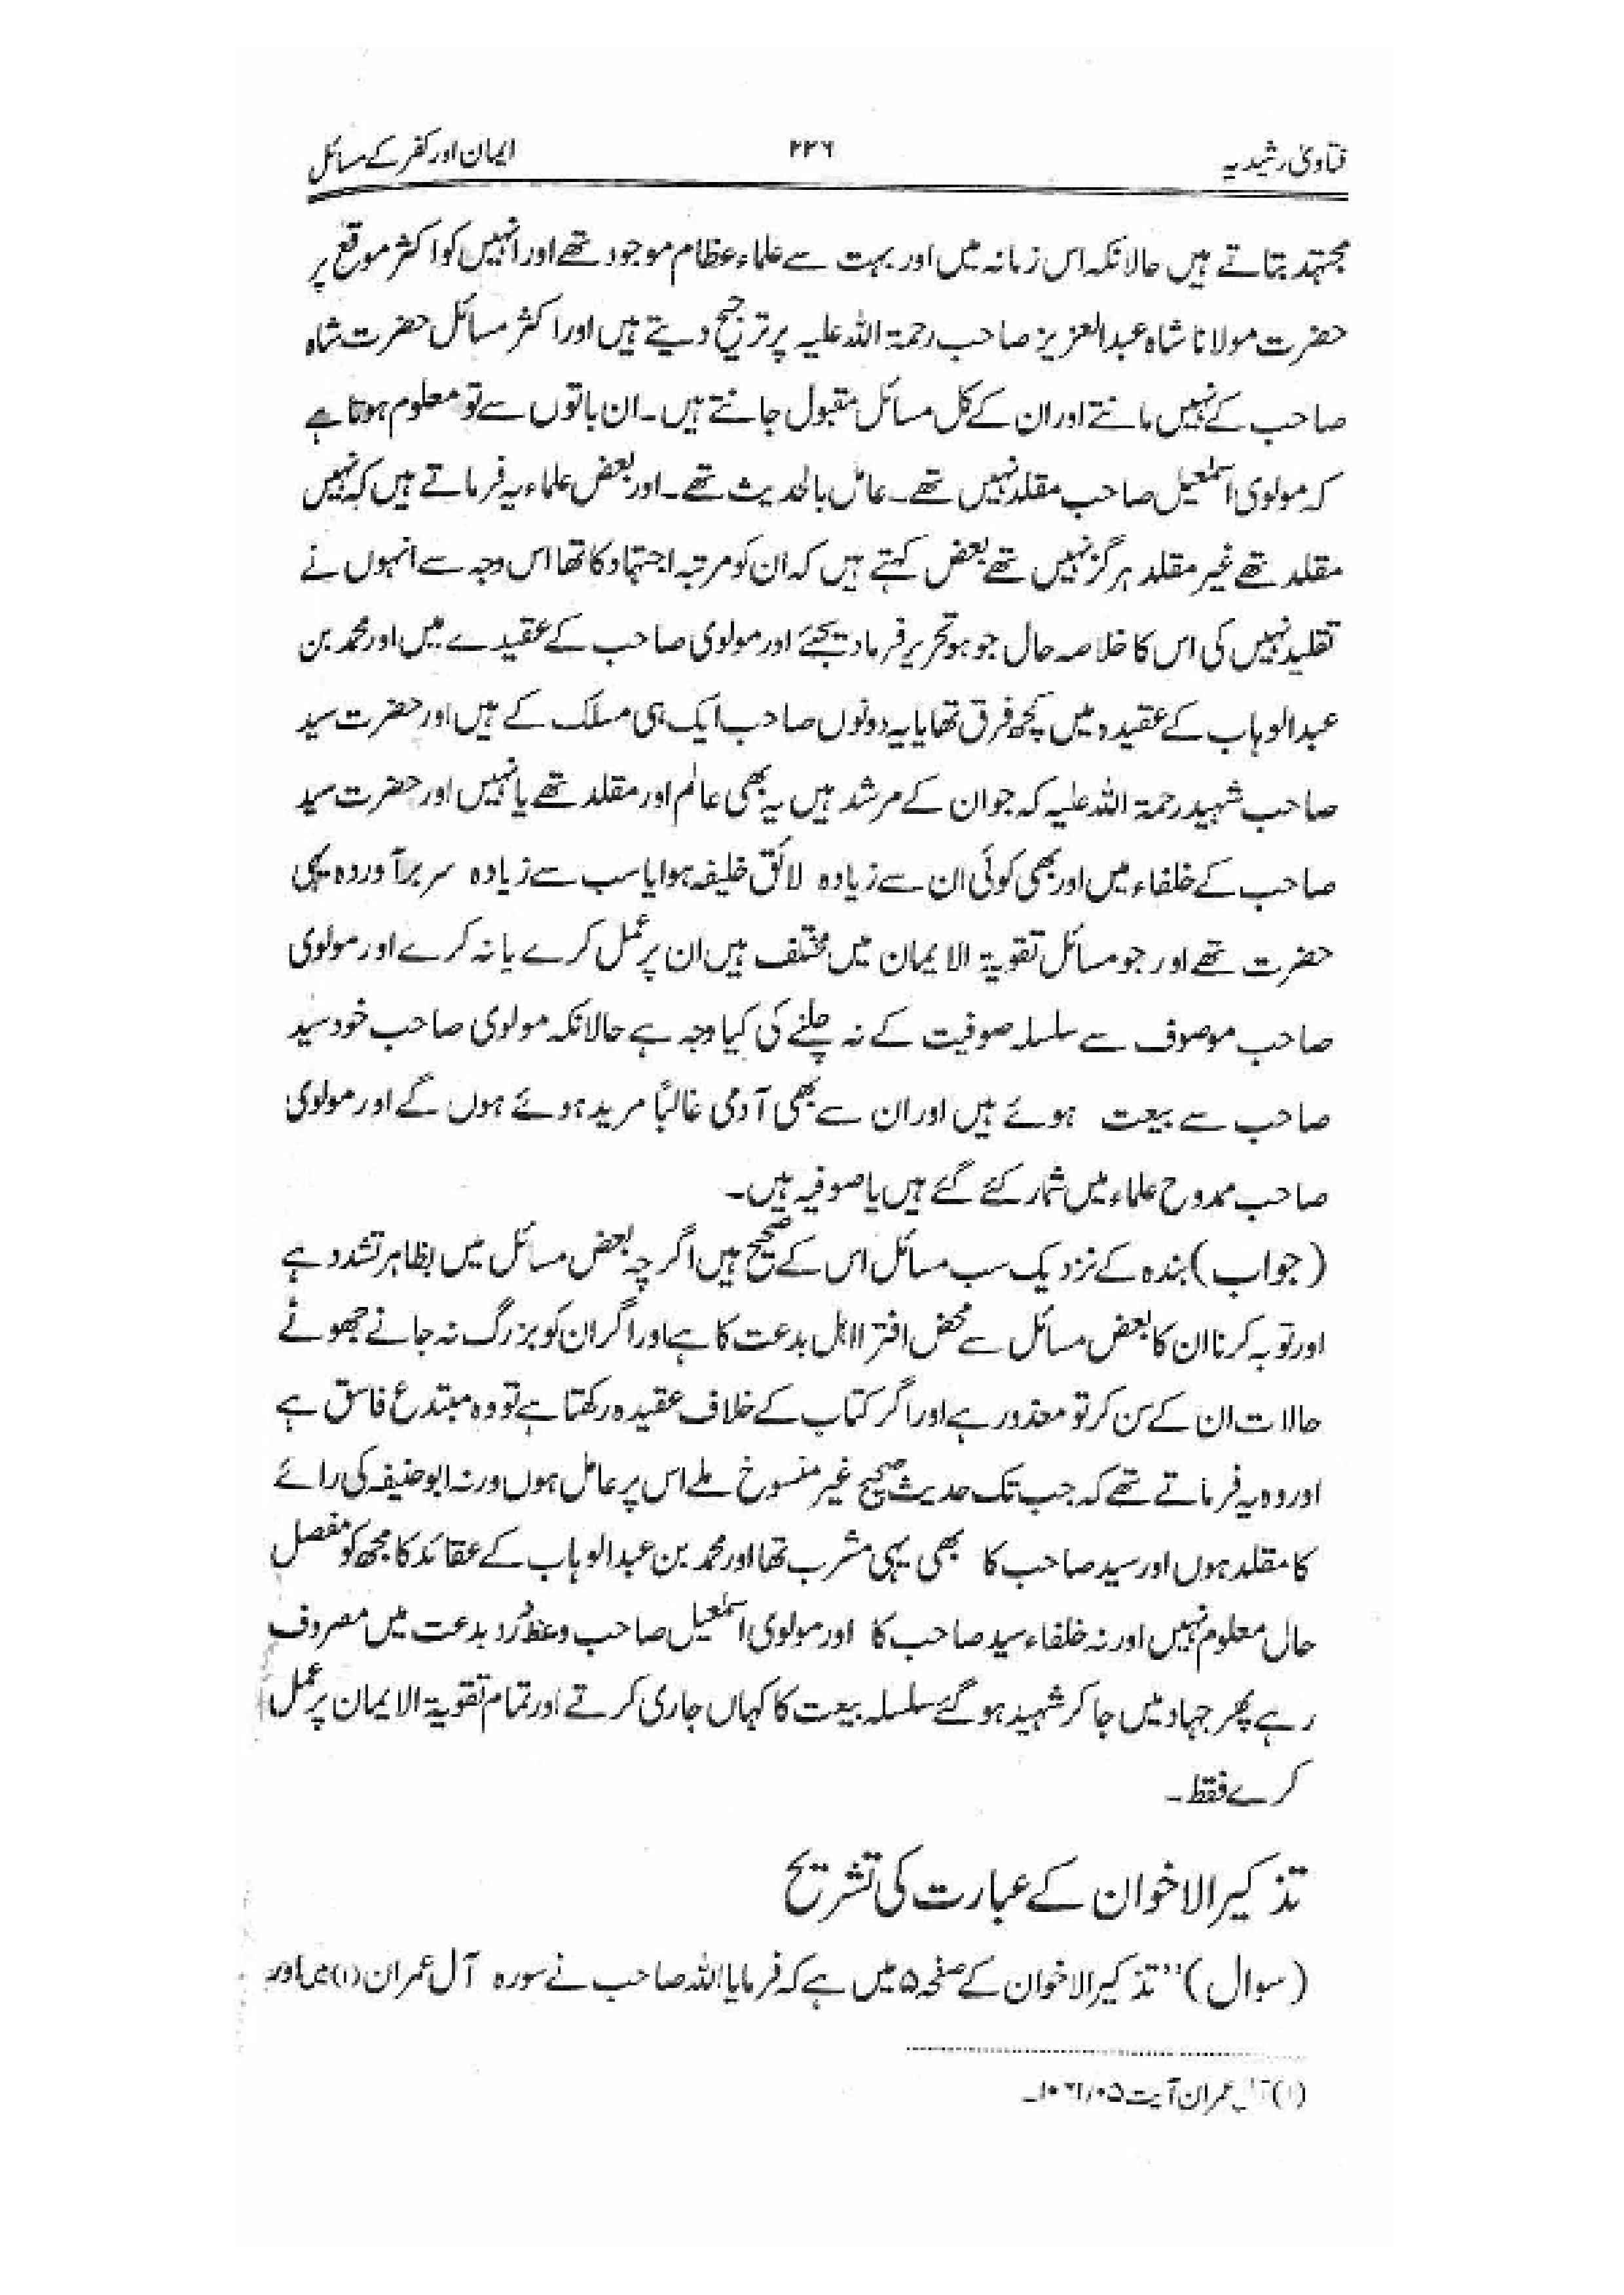 فتاویٰ رشیدیہ ۲۲۶ ایمان اور کفر کے مسائل
مجتہد بتاتے ہیں حالانکہ اس زمانہ میں اور بہت سے علماء عظام موجود تھے اور انہیں کو اکثر موقع پر
حضرت مولانا شاہ عبدالعزیز صاحب رحمۃ اللہ علیہ پر ترجیح دیتے ہیں اور اکثر مسائل حضرت شاہ
صاحب کے نہیں مانتے اور ان کے کل مسائل مقبول جانتے ہیں۔ ان باتوں سے تو معلوم ہوتا ہے
کہ مولوی اسمٰعیل صاحب مقلد نہیں تھے۔ عامل بالحدیث تھے۔ اور بعض علماء یہ فرماتے ہیں کہ نہیں
مقلد تھے غیر مقلد ہرگز نہیں تھے بعض کہتے ہیں کہ ان کو مرتبہ اجتہاد کا تھا اس وجہ سے انہوں نے
تقلید نہیں کی اس کا خلاصہ حال جو ہو تحریر فرما دیجئے اور مولوی صاحب کے عقیدے میں اور محمد بن
عبدالوہاب کے عقیدہ میں کچھ فرق تھا یا یہ دونوں صاحب ایک ہی مسلک کے ہیں اور حضرت سید
صاحب شہید رحمۃ اللہ علیہ کہ جو ان کے مرشد ہیں یہ بھی عالم اور مقلد تھے یا نہیں اور حضرت سید
صاحب کے خلفاء میں اور بھی کوئی ان سے زیادہ لائق خلیفہ ہوا یا سب سے زیادہ سربرآوردہ یہی
حضرت تھے اور جو مسائل تقویۃ الایمان میں مختلف ہیں ان پر عمل کرے یا نہ کرے اور مولوی
صاحب موصوف سے سلسلہ صوفیت کے نہ چلنے کی کیا وجہ ہے حالانکہ مولوی صاحب خود سید
صاحب سے بیعت ہوئے ہیں اور ان سے بھی آدمی غالباً مرید ہوئے ہوں گے اور مولوی
صاحب ممدوح علماء میں شمار کئے گئے ہیں یا صوفیہ ہیں۔
(جواب) بندہ کے نزدیک سب مسائل اس کے صحیح ہیں اگرچہ بعض مسائل میں بظاہر تشدد ہے
اور توبہ کرنا ان کا بعض مسائل سے محض افترا اہل بدعت کا ہے اور اگر ان کو بزرگ نہ جانے جھوٹے
حالات ان کے سن کر تو معذور ہے اور اگر کتاب کے خلاف عقیدہ رکھتا ہے تو وہ مبتدع فاسق ہے
اور وہ یہ فرماتے تھے کہ جب تک حدیث صحیح غیر منسوخ ملے اس پر عامل ہوں ورنہ ابو حنیفہ کی رائے
کا مقلد ہوں اور سید صاحب کا بھی یہی مشرب تھا اور محمد بن عبدالوہاب کے عقائد کا مجھ کو مفصل
حال معلوم نہیں اور نہ خلفاء سید صاحب کا اور مولوی اسمٰعیل صاحب وعظ رُد بدعت میں مصروف
رہے پھر جہاد میں جا کر شہید ہو گئے سلسلہ بیعت کا کہاں جاری کرتے اور تمام تقویۃ الایمان پر عمل
کرے فقط۔
تذکیر الاخوان کے عبارت کی تشریح
(سوال) "تذکیر الاخوان کے صفحہ ۵ میں ہے کہ فرمایا اللہ صاحب نے سورہ آل عمران (۱) میں اور
(۱) آل عمران آیت ۱۰۶/۰۵۔